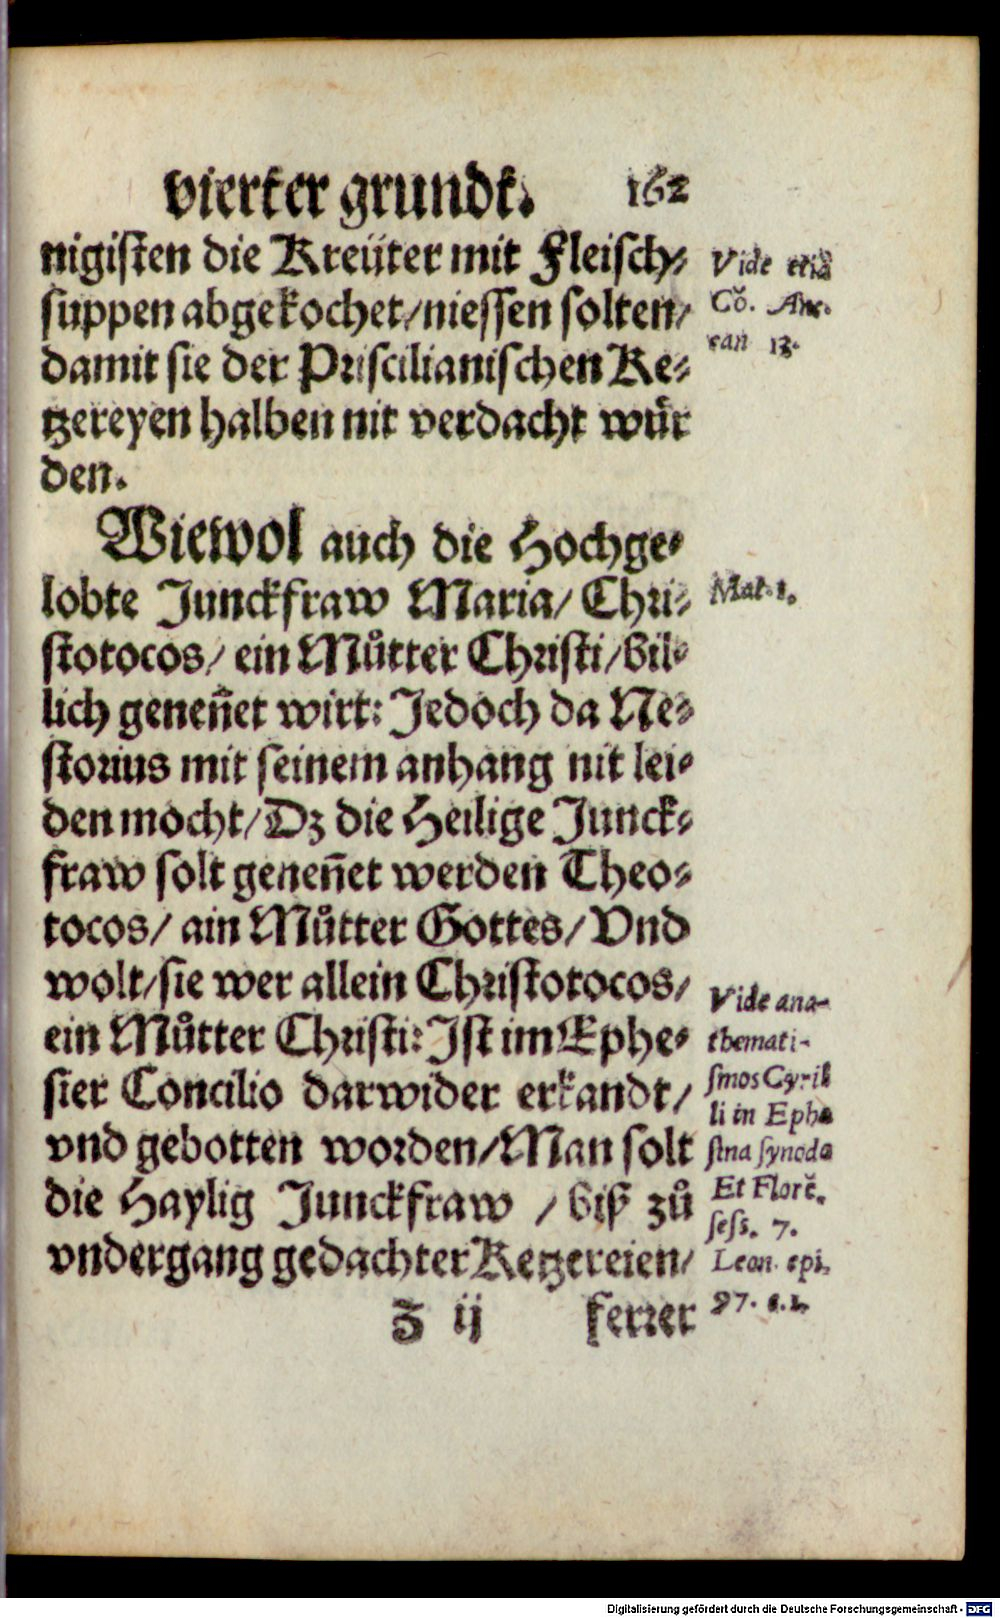 vierter grundt. 162
nigisten die Kreüter mit Fleisch⸗
suppen abgekochet/niessen solten/
damit sie der Priscilianischen Ke⸗
tzereyen halben nit verdacht wůr
den.
Wiewol auch die Hochge⸗
lobte Junckfraw Maria/ Chri⸗
stotocos/ ein Můtter Christi/bil⸗
lich geneñet wirt: Jedoch da Ne⸗
storius mit seinem anhang nit lei⸗
den mocht/Dz die Heilige Junck⸗
fraw solt geneñet werden Theo⸗
tocos/ ain Můtter Gottes/Vnd
wolt/sie wer allein Christotocos/
ein Můtter Christi: Jst im Ephe⸗
sier Concilio darwider erkandt/
vnd gebotten worden/Man solt
die Haylig Junckfraw /biß zů
vndergang gedachter Ketzereien/
Z ij ferrer
Vide etiã
Cõ. Anc.
can 13.
Mat. 1.
Vide ana-
themati-
smos Cyril
li in Ephe
sina synodo
Et Florẽ.
sess. 7.
Leon. epi.
97. c. 2.
Digitalisierung gefördert durch die Deutsche Forschungsgemeinschaft - DFG